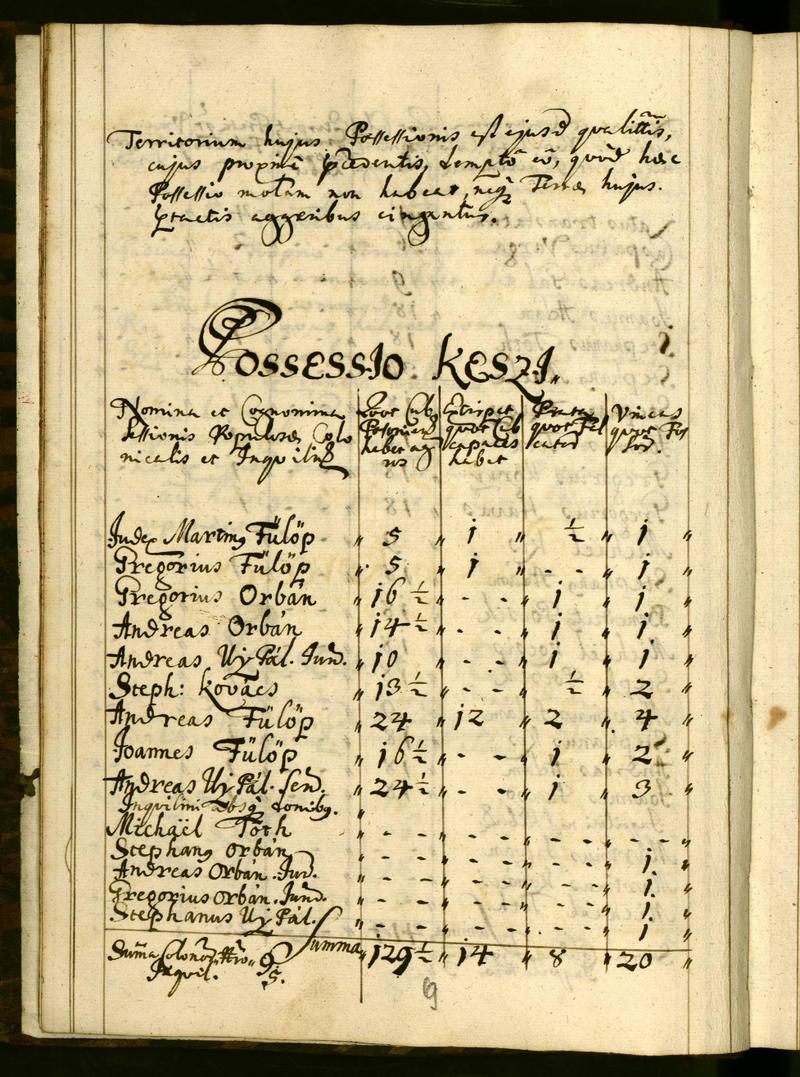 Territorium hujus Possessionis est ejusd qualittis,
cujus proxime pcedentis, dempto eo, quod haec
Possessio molam non habeat, neq Terrae hujus
ptactis aggeribus cinguntur.
Possessio Keszi.
Nomina et Cognomina
Sessionis Populosae Colo
nicalis et Inquilinae
Quot Cub
Posonien
habet ag
ros
Extirpat
quot Cub
capaces
habet
Prata
quot Fal
catorum
Vineas
quot Fos
sor.
Judex Martinus Fülöp " 5 " 1 " ½ " 1 "
Gregorius Fülöp " 5 " 1 " - - " 1 "
Gregorius Orbán " 16 ½ " - - " 1 " 1 "
Andreas Orbán " 14 ½ " - - " 1 " 1 "
Andreas Uÿ Pál. Jun. " 10 " - - " 1 " 1 "
Steph: Kovács " 13 ½ " - - " ½ " 2 "
Andreas Fülöp " 24 " 12 " 2 " 4 "
Joannes Fülöp " 16 ½ " - - " 1 " 2 "
Andreas Uÿ Pál. Sen. " 24 ½ " - - " 1 " 3 "
Inquilini absq Domibq.
Michaël Tóth " - - " - - " - - " - - "
Stephanus Orbán " - - " - - " - - " 1 "
Andreas Orbán. Jun. " - - " - - " - - " 1 "
Gregorius Orbán. Jund. " - - " - - " - - " 1 "
Stephanus Uÿ Pál. " - - " - - " - - " 1 "
Summa " 129 ½ " 14 " 8 " 20 "
Suma Colonor 9
Inquil. 5.
9